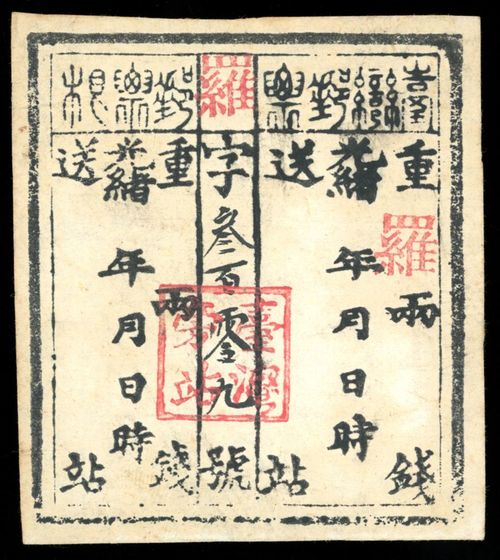 臺灣郵票
重 兩 錢
羅
光緒 年月日時
送 站
羅字叁百零九號
臺灣
站
郵票根
重 兩 錢
光緒 年月日時
送 站